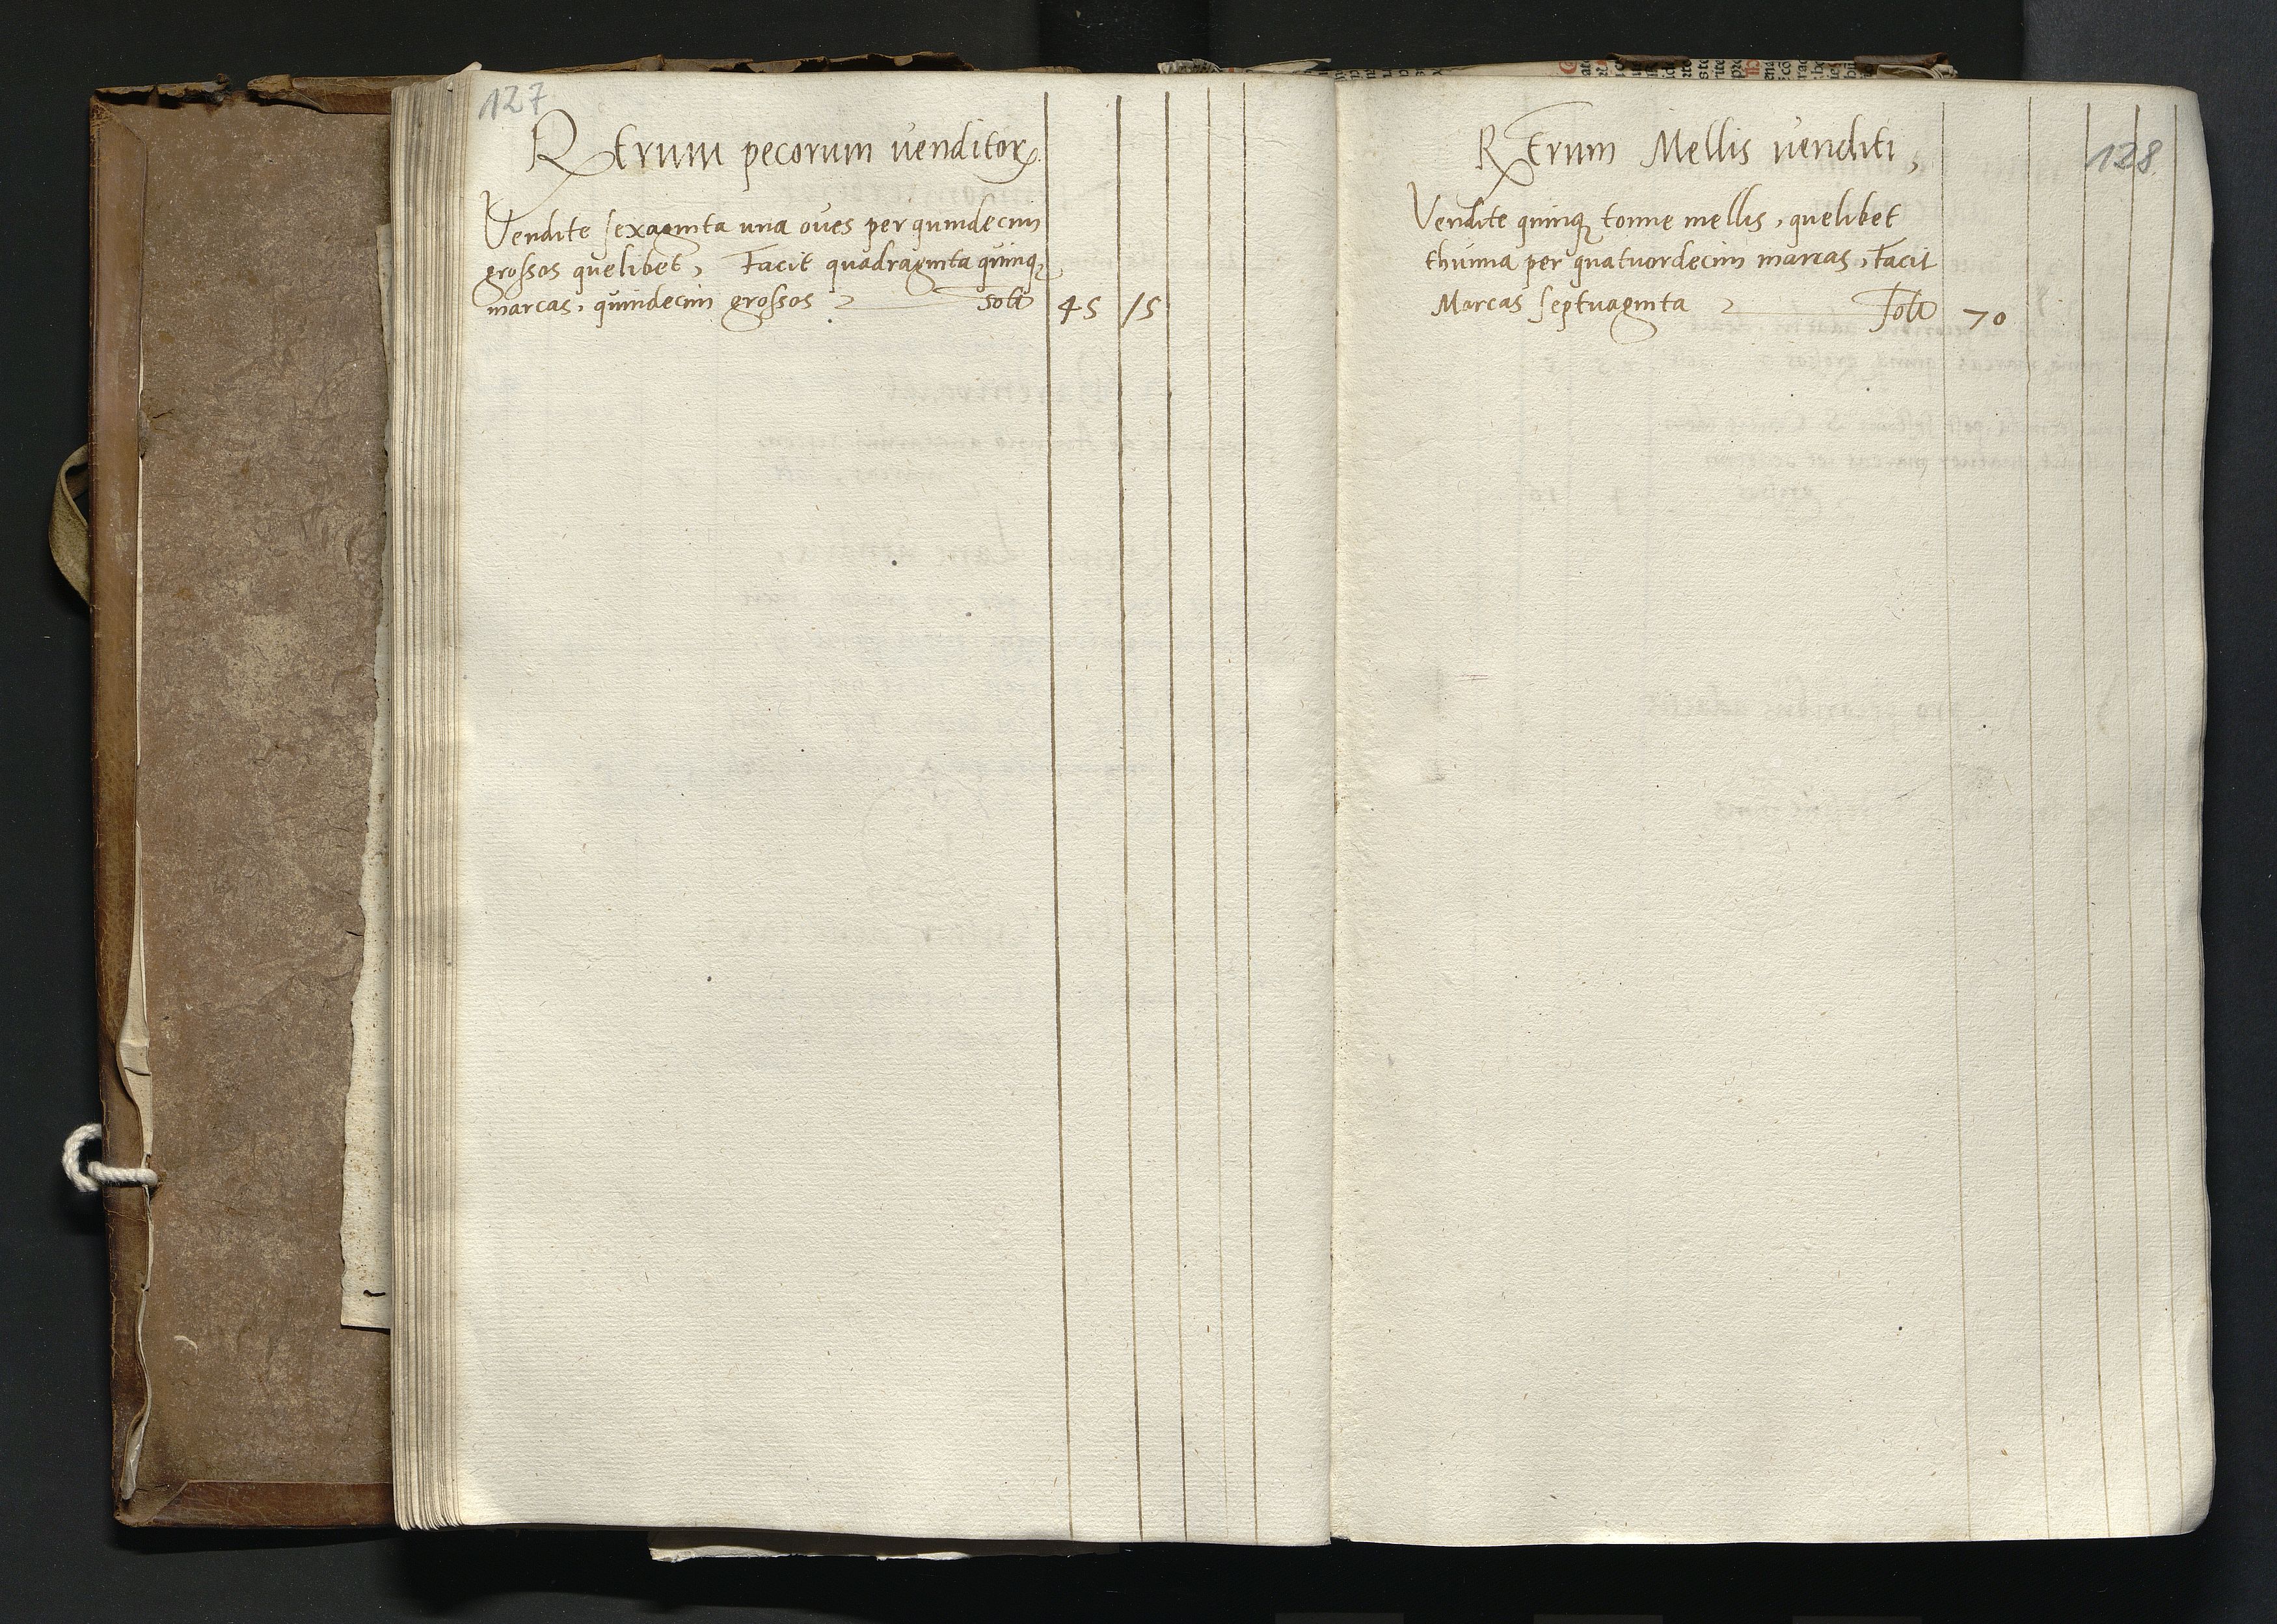 127
Rerum pecorum venditorꝝ.
Vendite sexaginta una oves per quindecim
grossos quelibet, Facit quadraginta quinqꝫ
marcas, quindecim grossos 45 15
128
Rerum Mellis venditi,
Vendite quinqꝫ tonne mellis, quelibet
thunna per quatuordecim marcas, Facit
Marcas septuaginta 70